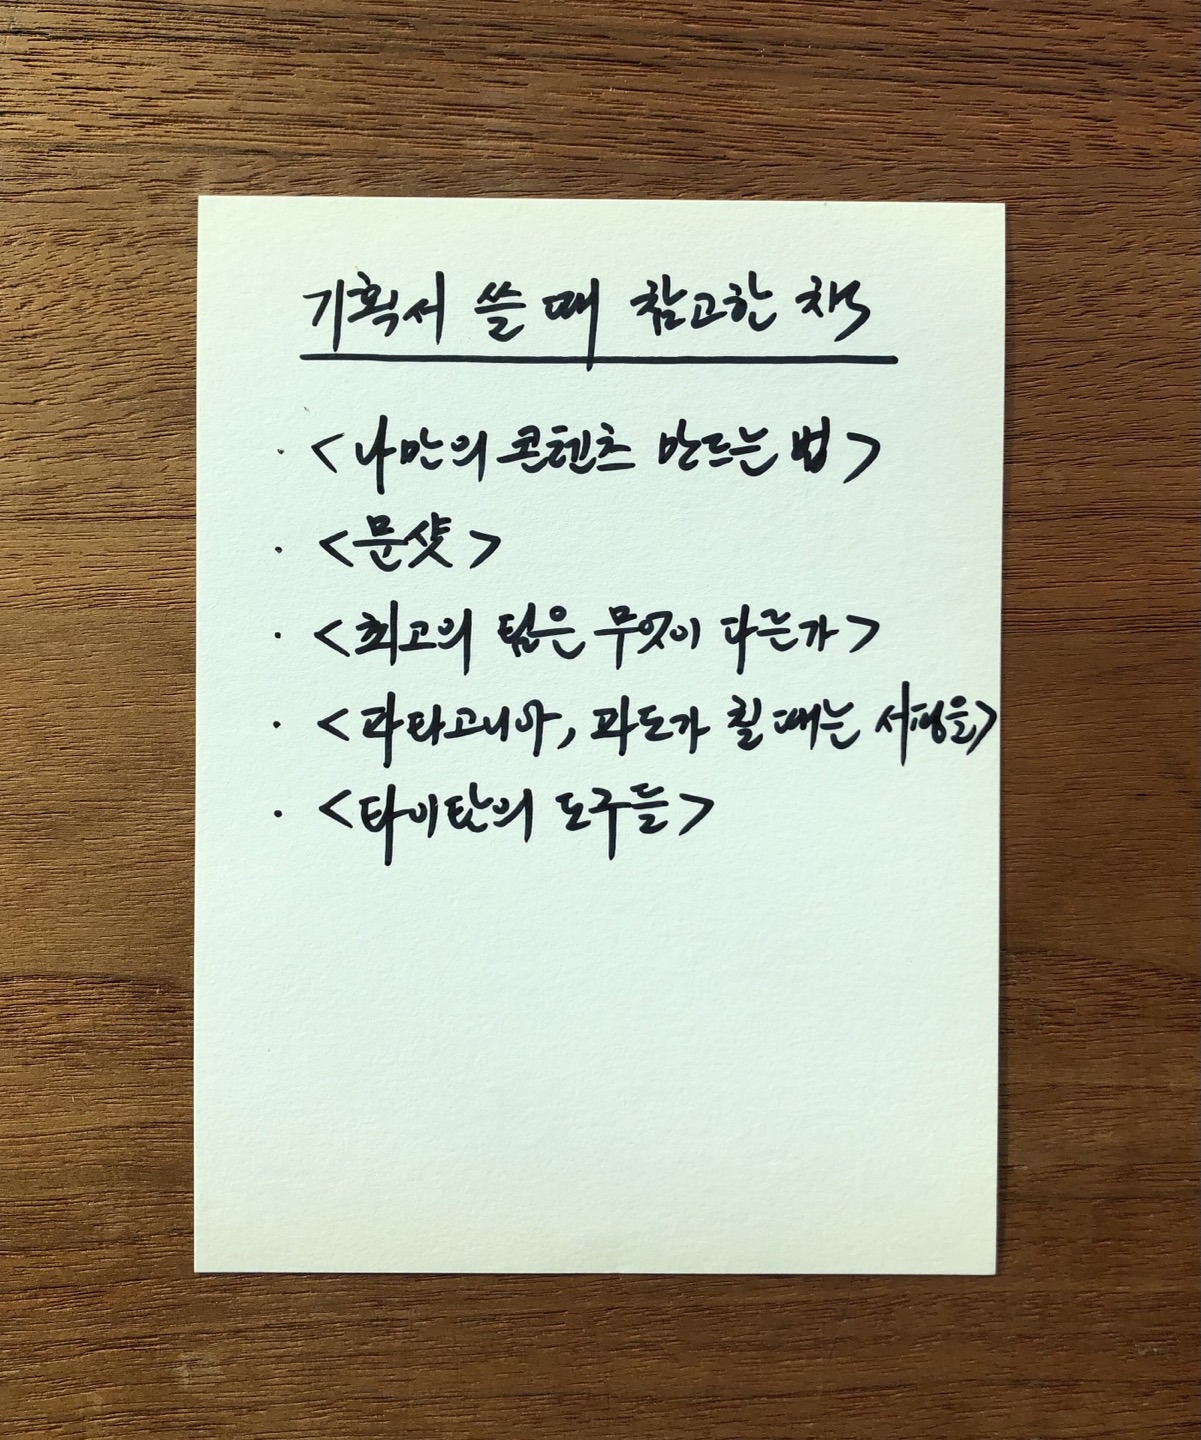 기획서 쓸 때 참고한 책
· <나만의 콘텐츠 만드는 법>
· <문샷>
· <최고의 팀은 무엇이 다른가>
· <파타고니아, 파도가 칠 때는 서핑을>
· <타이탄의 도구들>